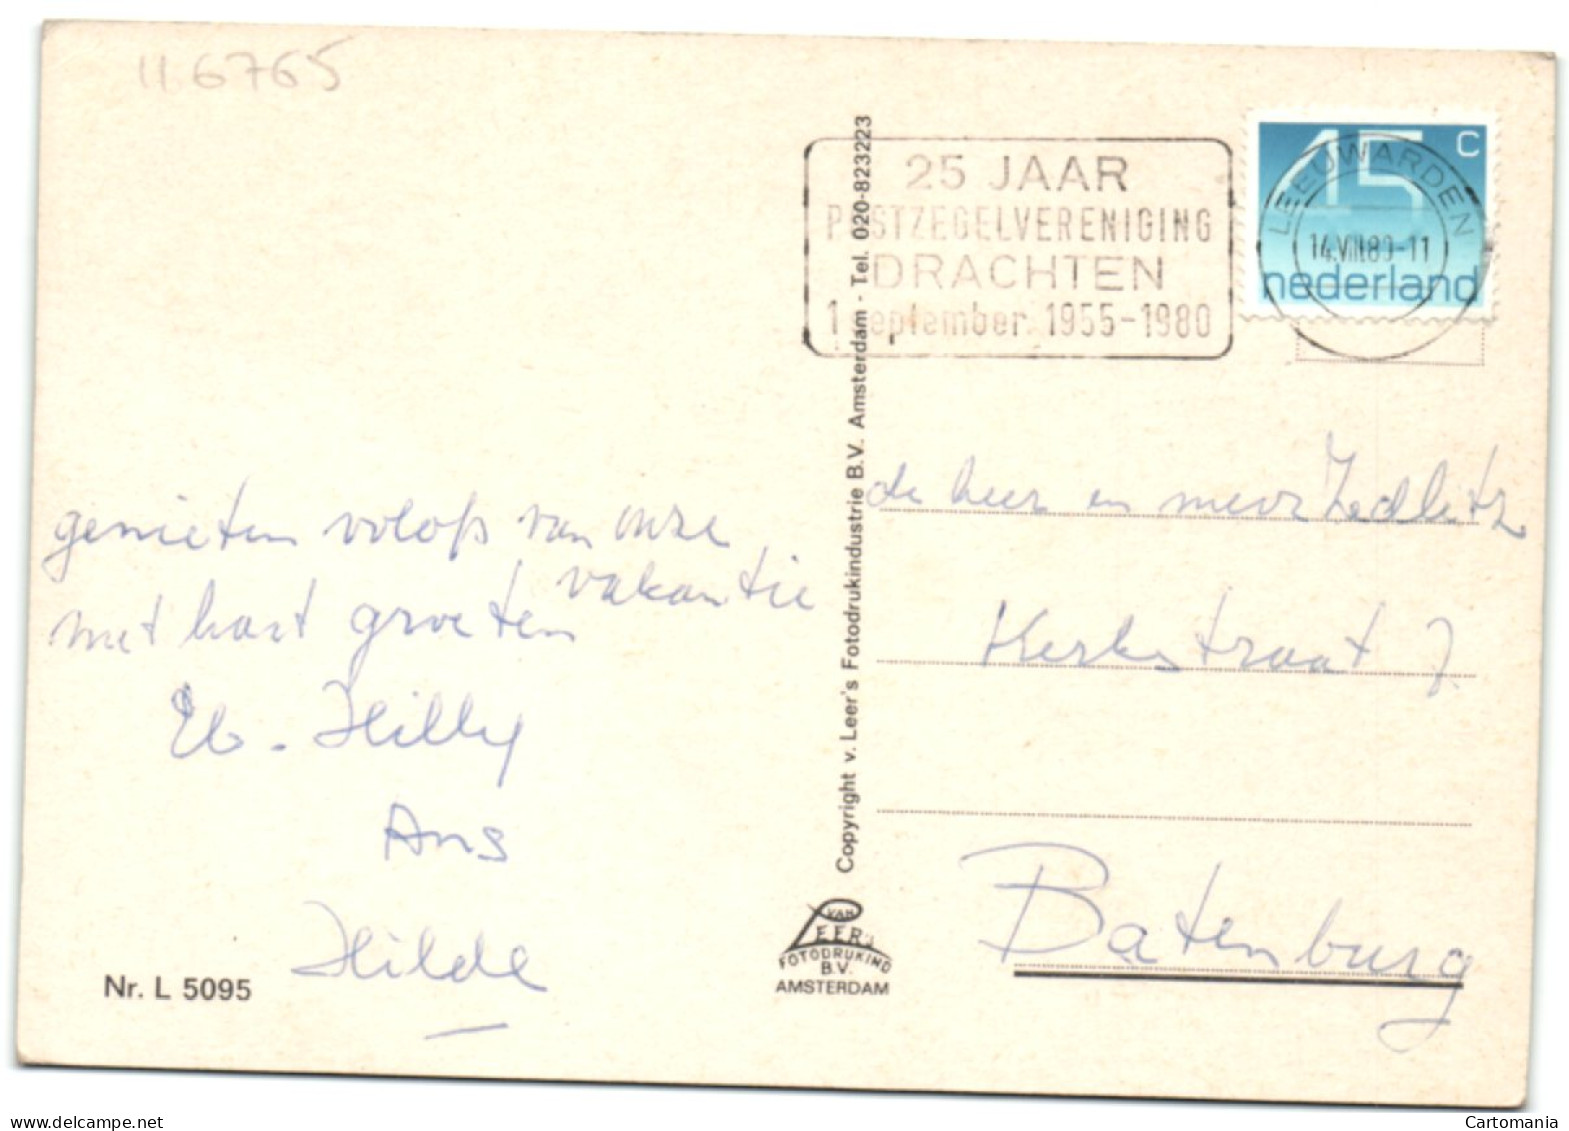 116765
25 JAAR
POSTZEGELVERENIGING
DRACHTEN
1 september 1955-1980
45 c
nederland
LEEUWARDEN
14.VIII.80-11
genieten volop van onze
vakantie
met hart groeten
Eb. Hilly
Ans
Hilde
Nr. L 5095
Copyright v. Leer's Fotodrukindustrie B.V. Amsterdam - Tel. 020-823223
VAN
LEER's
FOTODRUKIND
B.V.
AMSTERDAM
de heer en mevr Zedlitz
Kerkstraat 7.
Batenburg
www.delcampe.net
Cartomania